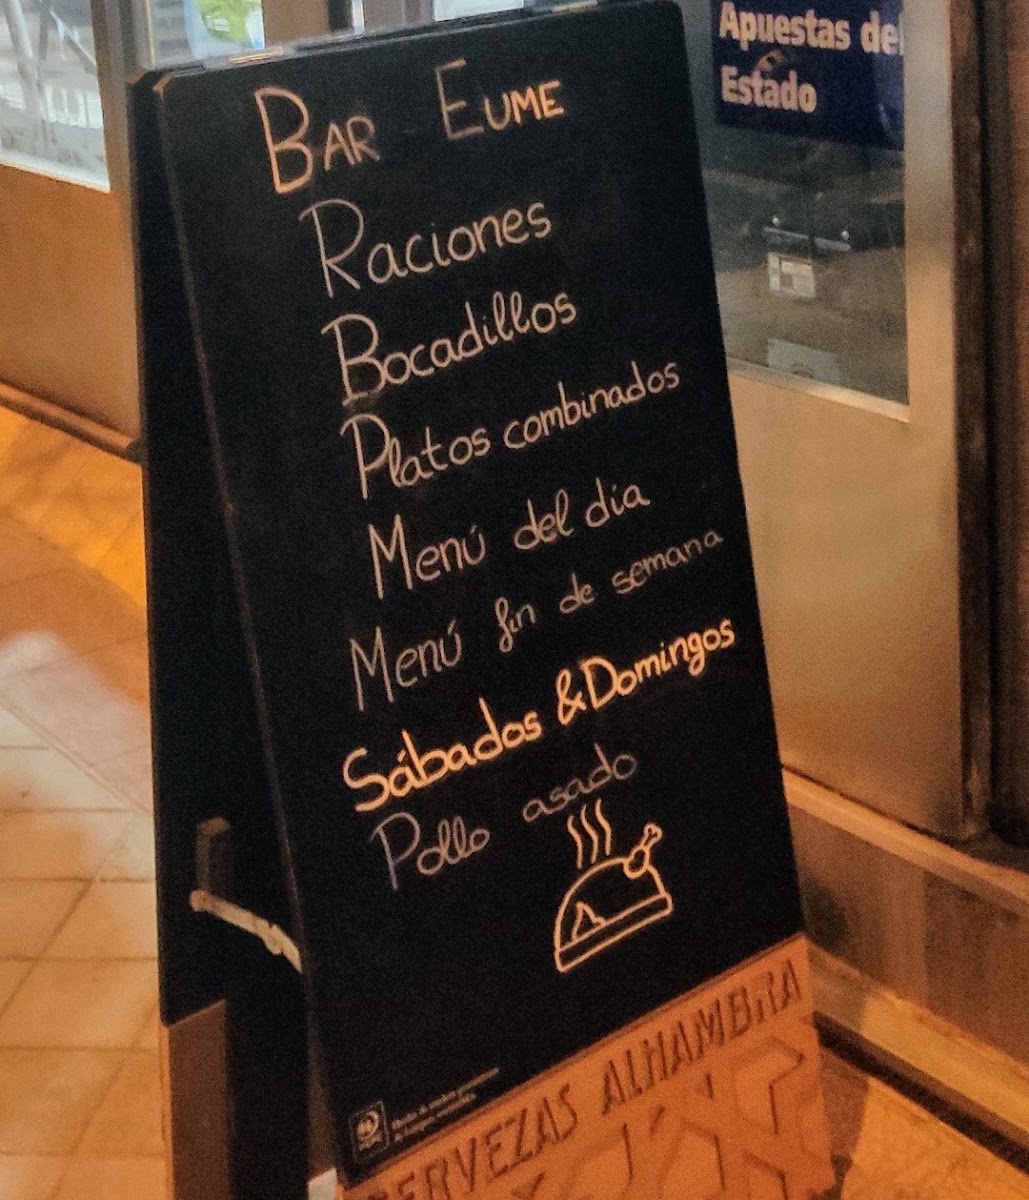 Apuestas del
Estado
BAR EUME
Raciones
Bocadillos
Platos combinados
Menú del día
Menú fin de semana
Sábados & Domingos
Pollo asado
CERVEZAS ALHAMBRA